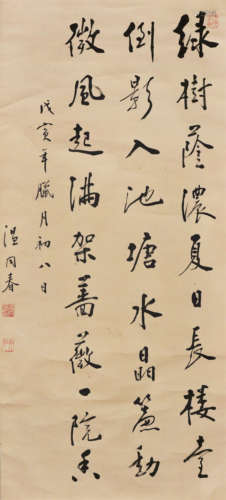 綠樹蔭濃夏日長樓臺
倒影入池塘水晶簾動
微風起滿架薔薇一院香
戊寅年臘月初八日
温同春